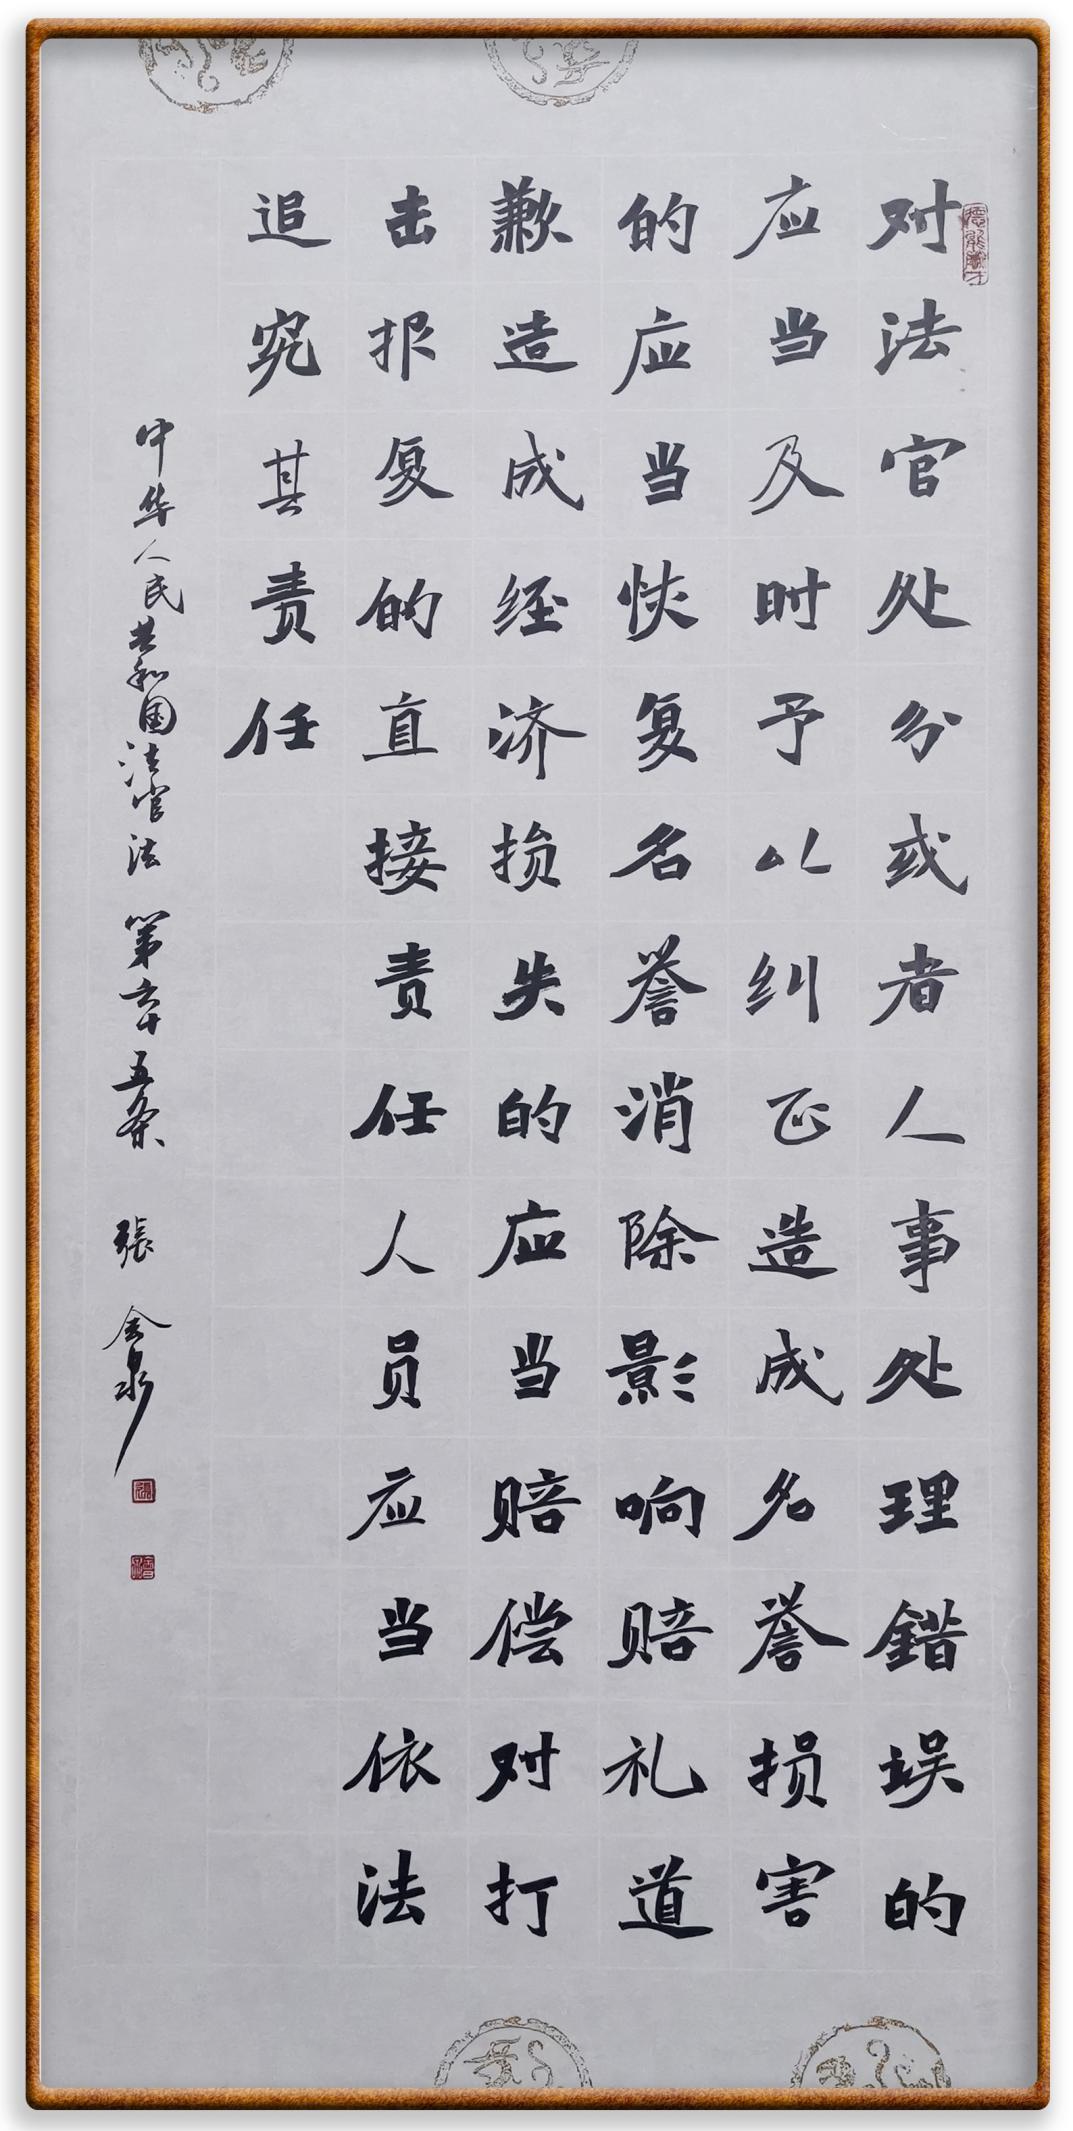 对法官处分或者人事处理錯误的
应当及时予以纠正造成名誉损害
的应当恢复名誉消除影响赔礼道
歉造成经济损失的应当赔偿对打
击报复的直接责任人员应当依法
追究其责任
中华人民共和国法官法 第六十五条 張金泉